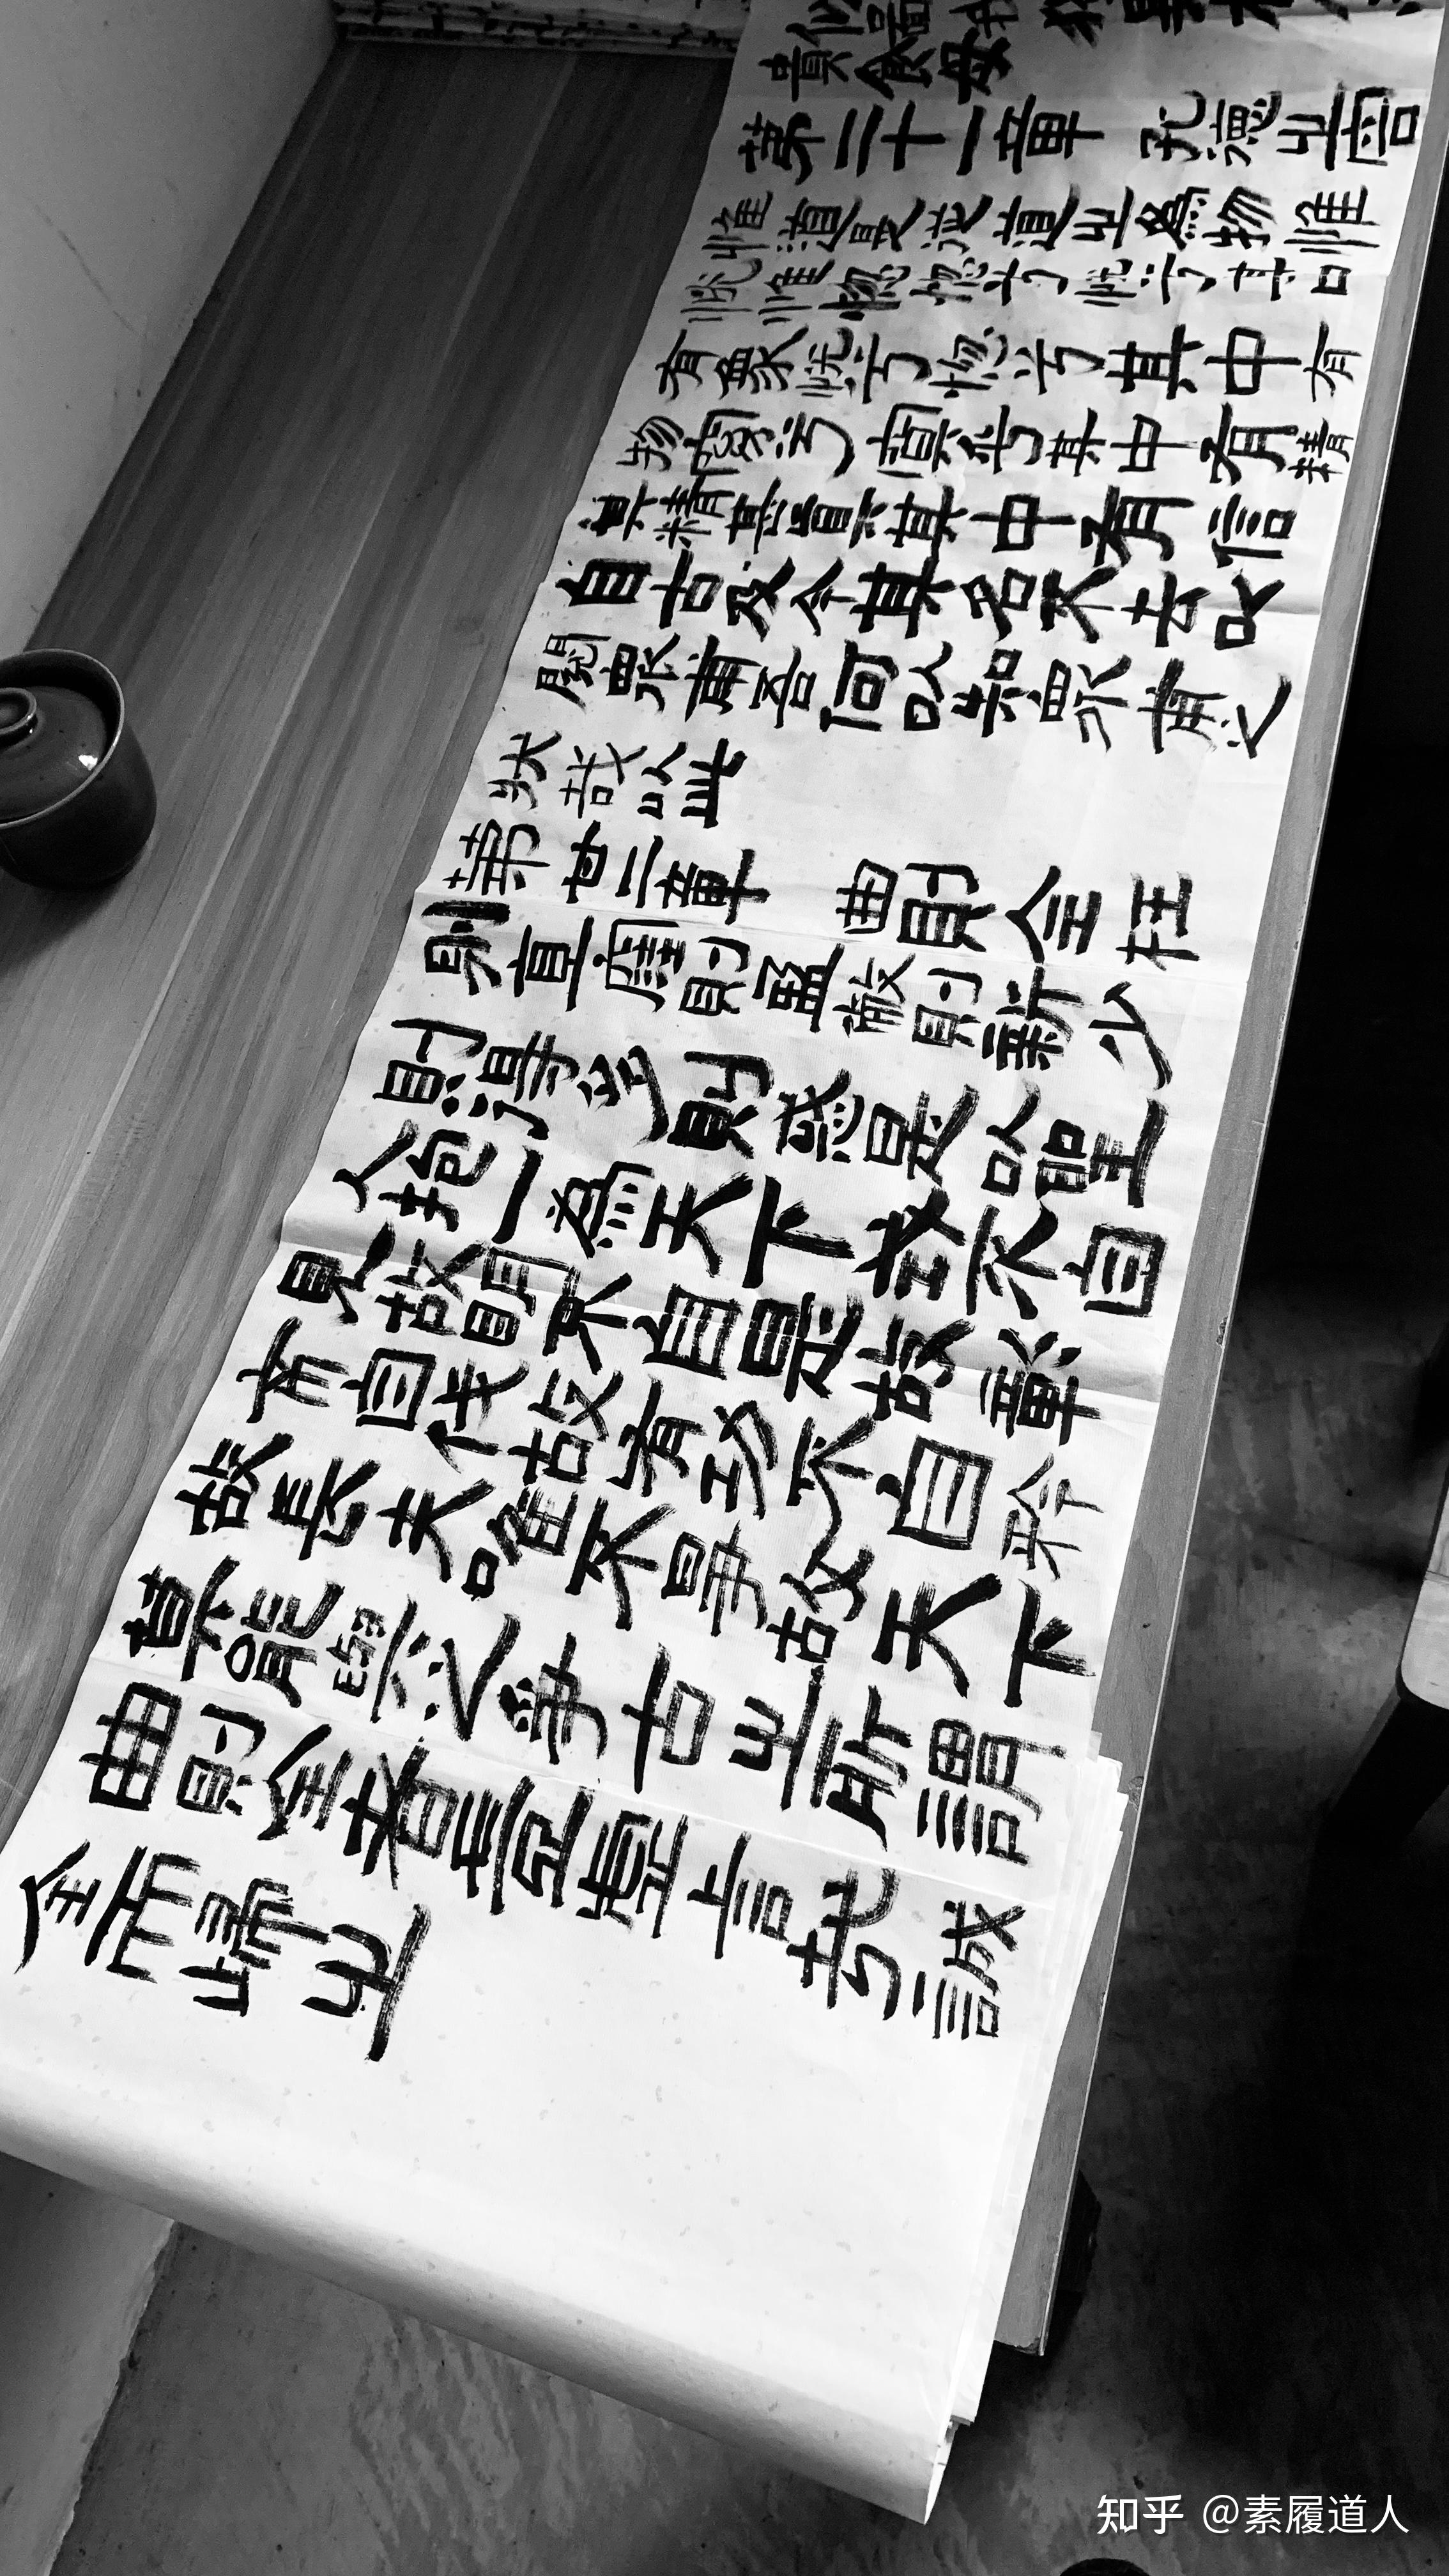 貴食母
第二十一章 孔德之容
惟道是從道之為物惟
恍惟惚惚兮恍兮其中
有象恍兮惚兮其中有
物窈兮冥兮其中有精
其精甚真其中有信
自古及今其名不去以
閱眾甫吾何以知眾甫之
狀哉以此
第廿二章 曲則全枉
則直窪則盈敝則新少
則得多則惑是以聖
人抱一為天下式不自
見故明不自是故彰
不自伐故有功不自矜
故長夫唯不爭故天下
莫能與之爭古之所謂
曲則全者豈虛言哉誠
全而歸之
知乎 @素履道人